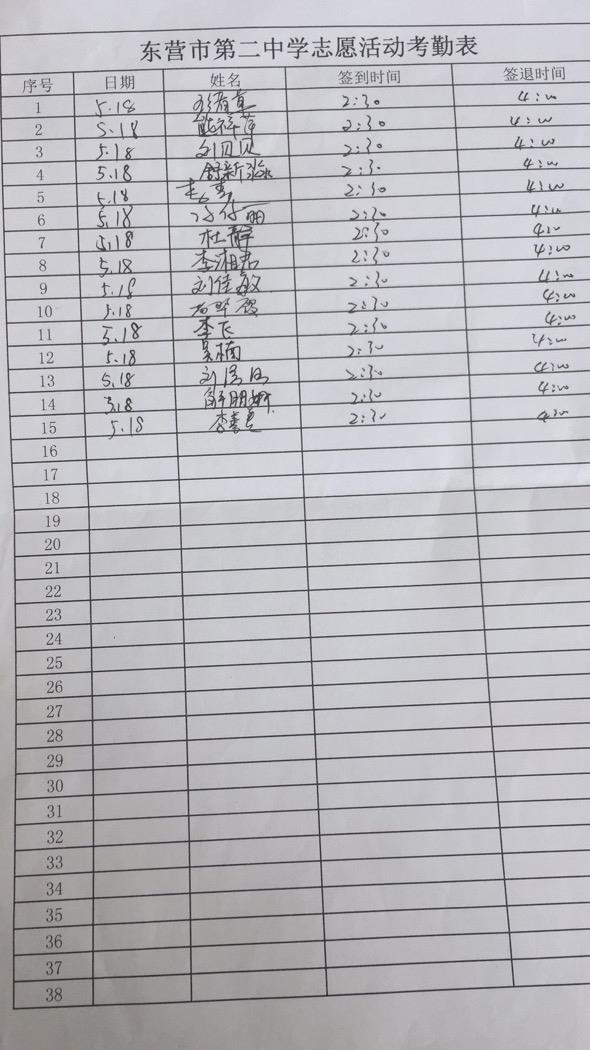 东营市第二中学志愿活动考勤表
序号 日期 姓名 签到时间 签退时间
1 5.18 2:30 4:00
2 5.18 熊祥萍 2:30 4:00
3 5.18 刘贝贝 2:30 4:00
4 5.18 舒新淼 2:30 4:00
5 5.18 2:30 4:00
6 5.18 2:30 4:00
7 5.18 杜静 2:30 4:00
8 5.18 李湘君 2:30 4:00
9 5.18 刘佳敏 2:30 4:00
10 5.18 2:30 4:00
11 5.18 李飞 2:30 4:00
12 5.18 吴楠 2:30 4:00
13 5.18 刘 2:30 4:00
14 5.18 解明姗 2:30 4:00
15 5.18 李 2:30 4:00
16
17
18
19
20
21
22
23
24
25
26
27
28
29
30
31
32
33
34
35
36
37
38